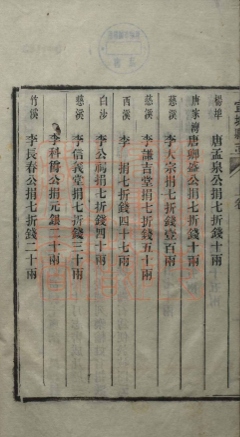 唐孟泉公捐七折錢二十兩
唐家灣 唐卿峯公捐七折錢十兩
慈溪 李大宗捐七折錢壹百兩
慈溪 李謙吉堂捐七折錢五十兩
西溪 李 捐七折錢四十七兩
白沙 李公祠捐七折錢四十兩
慈溪 李信義堂捐七折錢三十兩
李科傳公捐元銀二十兩
竹溪 李長春公捐七折錢二十兩